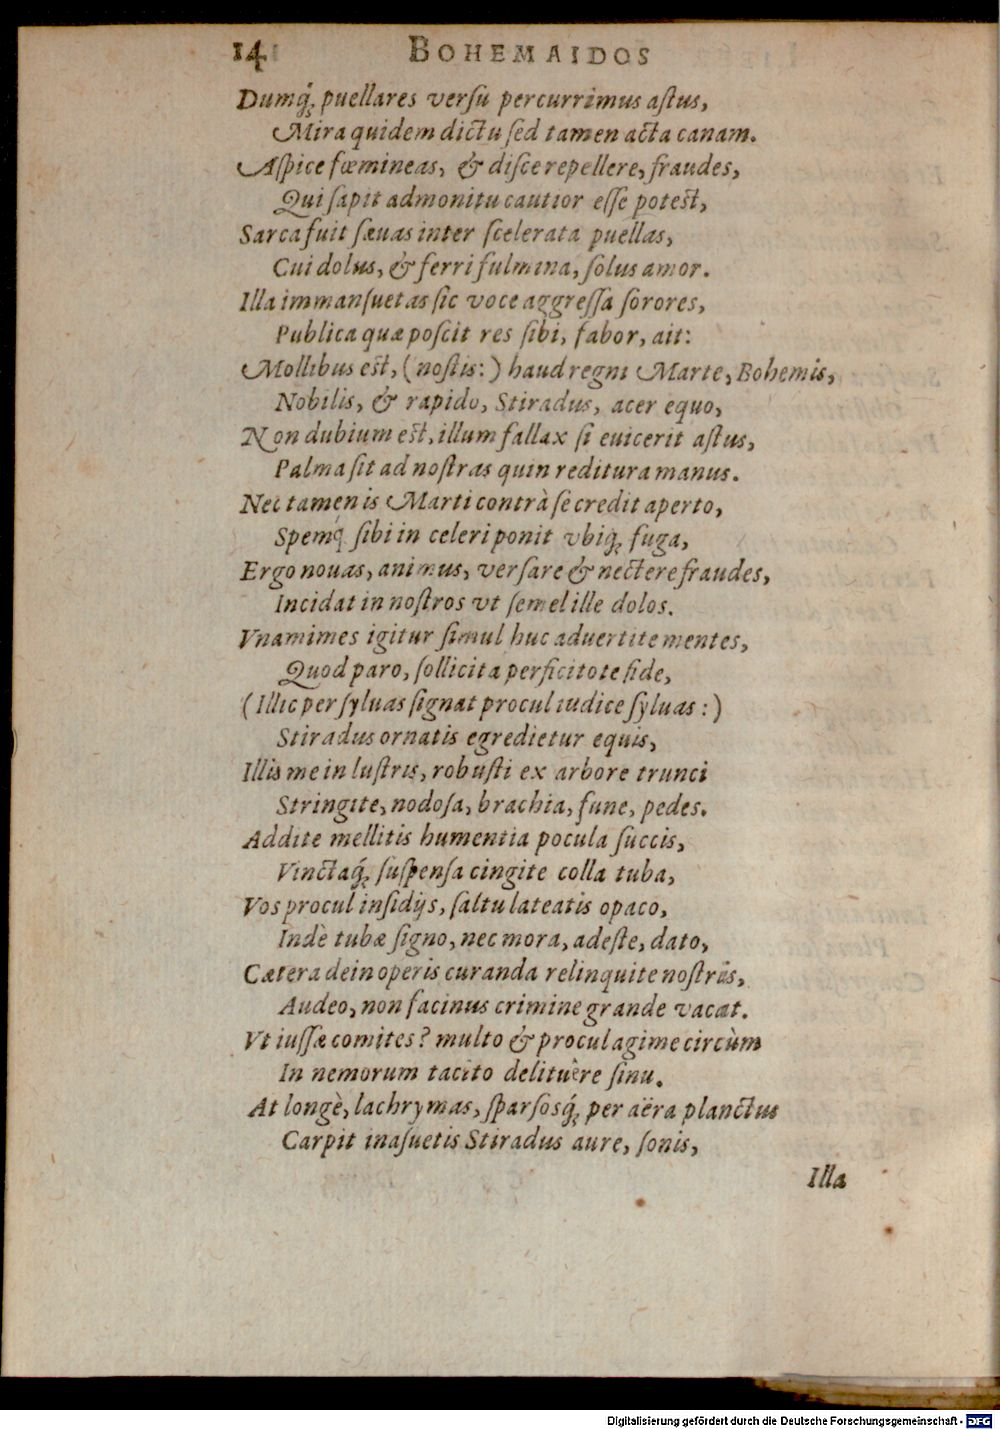 14 BOHEMAIDOS
Dumq́; puellares versu percurrimus astus,
Mira quidem dictu sed tamen acta canam.
Aspice fœmineas, & disce repellere, fraudes,
Qui sapit admonitu cautior esse potest,
Sarca fuit sæuas inter scelerata puellas,
Cui dolus, & ferri fulmina, solus amor.
Illa immansuetas sic voce aggressa sorores,
Publica quæ poscit res sibi, fabor, ait:
Mollibus est, (nostis:) haud regni Marte, Bohemis,
Nobilis, & rapido, Stiradus, acer equo,
Non dubium est, illum fallax si euicerit astus,
Palma sit ad nostras quin reditura manus.
Nec tamen is Marti contrà se credit aperto,
Spemq́; sibi in celeri ponit vbiq; fuga,
Ergo nouas, animus, versare & nectere fraudes,
Incidat in nostros vt semel ille dolos.
Vnamimes igitur simul huc aduertite mentes,
Quod paro, sollicita perficitote fide,
(Illic per syluas signat procul iudice syluas:)
Stiradus ornatis egredietur equis,
Illis me in lustris, robusti ex arbore trunci
Stringite, nodosa, brachia, fune, pedes.
Addite mellitis humentia pocula succis,
Vinctaq́; suspensa cingite colla tuba,
Vos procul insidijs, saltu lateatis opaco,
Indè tubæ signo, nec mora, adeste, dato,
Cætera dein operis curanda relinquite nostris,
Audeo, non facinus crimine grande vacat.
Vt iussæ comites? multo & procul agime circùm
In nemorum tacito delituêre sinu.
At longè, lachrymas, sparsosq́; per aëra planctus
Carpit inasuetis Stiradus aure, sonis,
Illa
Digitalisierung gefördert durch die Deutsche Forschungsgemeinschaft - DFG